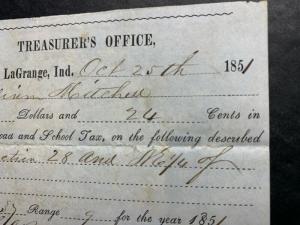 TREASURER'S OFFICE,
LaGrange, Ind. Oct 25th 1851
Mitchell
Dollars and 24 Cents in
oad and School Tax, on the following described
28 and of
Range 9 for the year 1851